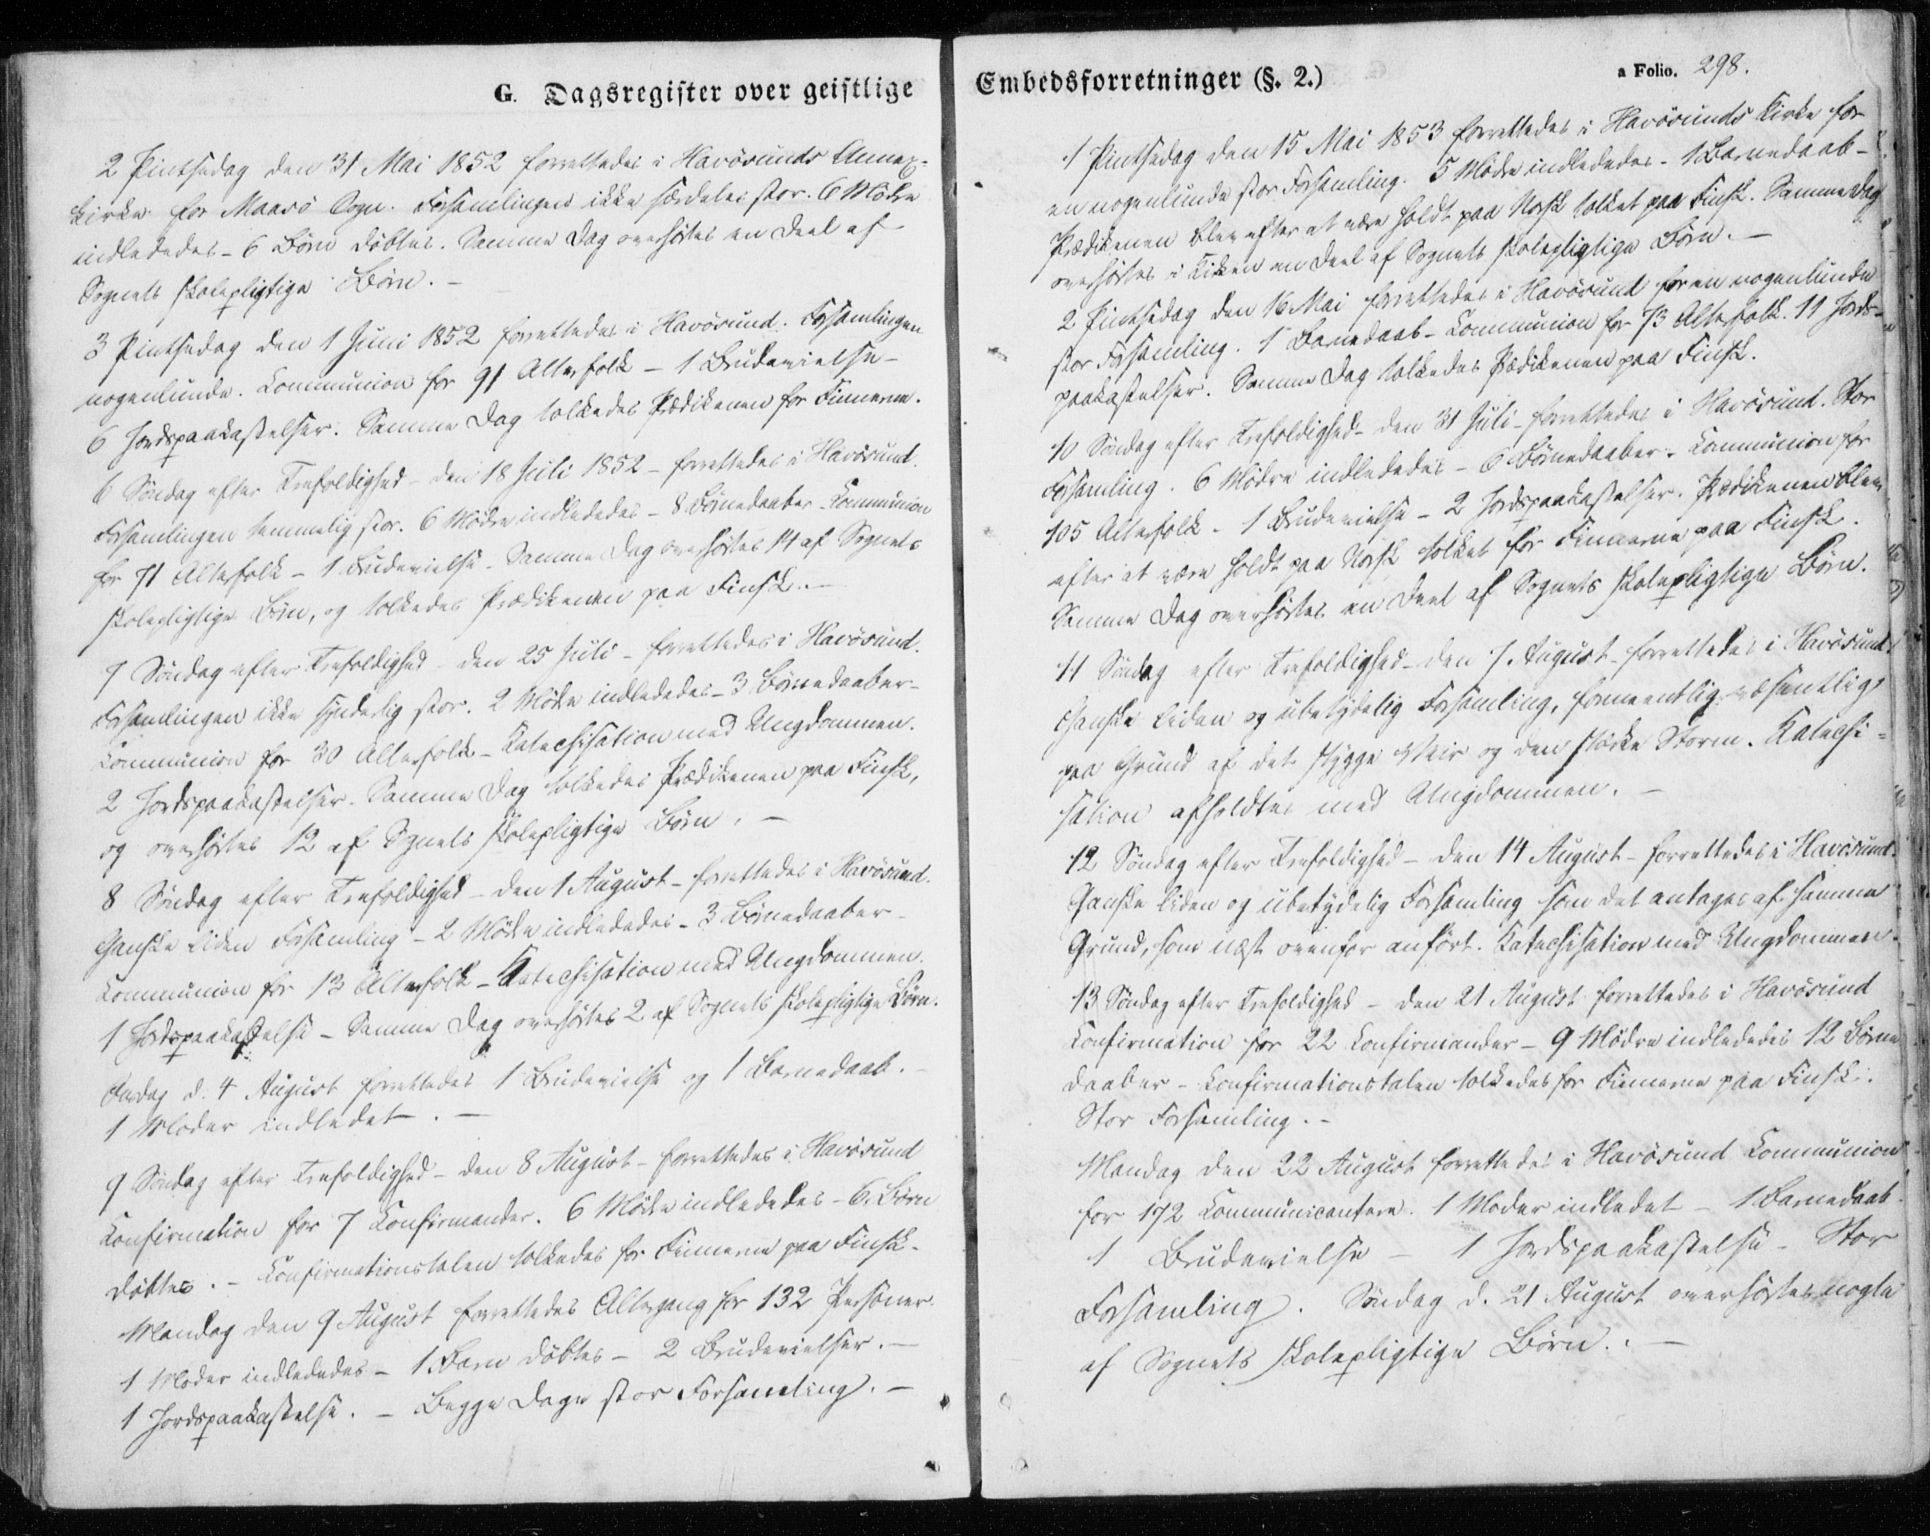 G. Dagsregister over geistlige
2 Pintsedag den 31 Mai 1852 forrettedes i Havösunds Annex-
kirke for Maasö Sogn. Forsamlingen ikke særdeles stor. 6 Mödre
indlededes - 6 Börn döbtes. Samme Dag overhörtes en Deel af
Sognets skolepligtige Börn. -
3 Pintsedag den 1 Juni 1852 forrettedes i Havösund. Forsamlingen
nogenlunde. Communion for 91 Altersfolk - 1 Brudevielse -
6 Jordspaakastelser. Samme Dag tolkedes Prædikenen for Finnerne.
6 Söndag efter Trefoldighed - den 18 Juli 1852 - forrettedes i Havösund.
Forsamlingen temmelig stor. 6 Mödre indlededes - 8 Börnedaaber - Communion
for 71 Altersfolk - 1 Brudevielse - Samme Dag overhörtes 14 af Sognets
skolepligtige Börn, og tolkedes Prædikenen paa Finsk. -
7 Söndag efter Trefoldighed - den 25 Juli - forrettedes i Havösund.
Forsamlingen ikke synderlig stor. 2 Mödre indlededes - 3 Börnedaaber -
Communion for 30 Altersfolk - Katechisation med Ungdommen.
2 Jordspaakastelser. Samme Dag tolkedes Prædikenen paa Finsk,
og overhörtes 12 af Sognets skolepligtige Börn. -
8 Söndag efter Trefoldighed - den 1 August - forrettedes i Havösund.
Ganske liden Forsamling - 2 Mödre indlededes - 3 Börnedaaber -
Communion for 13 Altersfolk - Katechisation med Ungdommen.
1 Jordspaakastelse - Samme Dag overhörtes 2 af Sognets skolepligtige Börn.
Onsdag d. 4 August forrettedes 1 Brudevielse og 1 Barnedaab. -
1 Moder indledet. -
9 Söndag efter Trefoldighed - den 8 August - forrettedes i Havösund
Confirmation for 7 Confirmander. 6 Mödre indlededes - 6 Börn
döbtes. - Confirmationstalen tolkedes for Finnerne paa Finsk.
Mandag den 9 August forrettedes Altergang for 132 Personer.
1 Moder indlededes - 1 Barn döbtes - 2 Brudevielser. -
1 Jordspaakastelse. - Begge Dage stor Forsamling. -
Embedsforretninger (§. 2.)
a Folio. 298.
1 Pintsedag den 15 Mai 1853 forrettedes i Havösunds Kirke for
en nogenlunde stor Forsamling. 5 Mödre indlededes - 1 Barnedaab -
Prædikenen blev efter at være holdt paa Norsk tolket paa Finsk. Samme Dag
overhörtes i Kirken en Deel af Sognets skolepligtige Börn. -
2 Pintsedag den 16 Mai forrettedes i Havösund for en nogenlunde
stor Forsamling. 1 Barnedaab - Communion for 73 Altersfolk. 11 Jords-
paakastelser. Samme Dag tolkedes Prædikenen paa Finsk.
10 Söndag efter Trefoldighed - den 31 Juli - forrettedes i Havösund. Stor
Forsamling. 6 Mödre indlededes - 6 Börnedaaber - Communion for
105 Altersfolk - 1 Brudevielse - 2 Jordspaakastelser. Prædikenen blev
efter at være holdt paa Norsk tolket for Finnerne paa Finsk.
Samme Dag overhörtes en Deel af Sognets skolepligtige Börn.
11 Söndag efter Trefoldighed - den 7 August - forrettedes i Havösund.
Ganske liden og ubetydelig Forsamling, formeentlig væsentligt
paa Grund af det stygge Veir og den stærke Storm. Katechi-
sation afholdtes med Ungdommen. -
12 Söndag efter Trefoldighed - den 14 August - forrettedes i Havösund.
Ganske liden og ubetydelig Forsamling som det antages af samme
Grund, som næst ovenfor anfört. Katechisation med Ungdommen.
13 Söndag efter Trefoldighed - den 21 August forrettedes i Havösund
Confirmation for 22 Confirmander - 9 Mödre indlededes 12 Börne
daaber - Confirmationstalen tolkedes for Finnerne paa Finsk.
Stor Forsamling. -
Mandag den 22 August forrettedes i Havösund Communion
for 172 Communicantere. 1 Moder indledet - 1 Barnedaab.
1 Brudevielse - 1 Jordspaakastelse - Stor
Forsamling. Söndag d. 21 August overhörtes nogle
af Sognets skolepligtige Börn. -